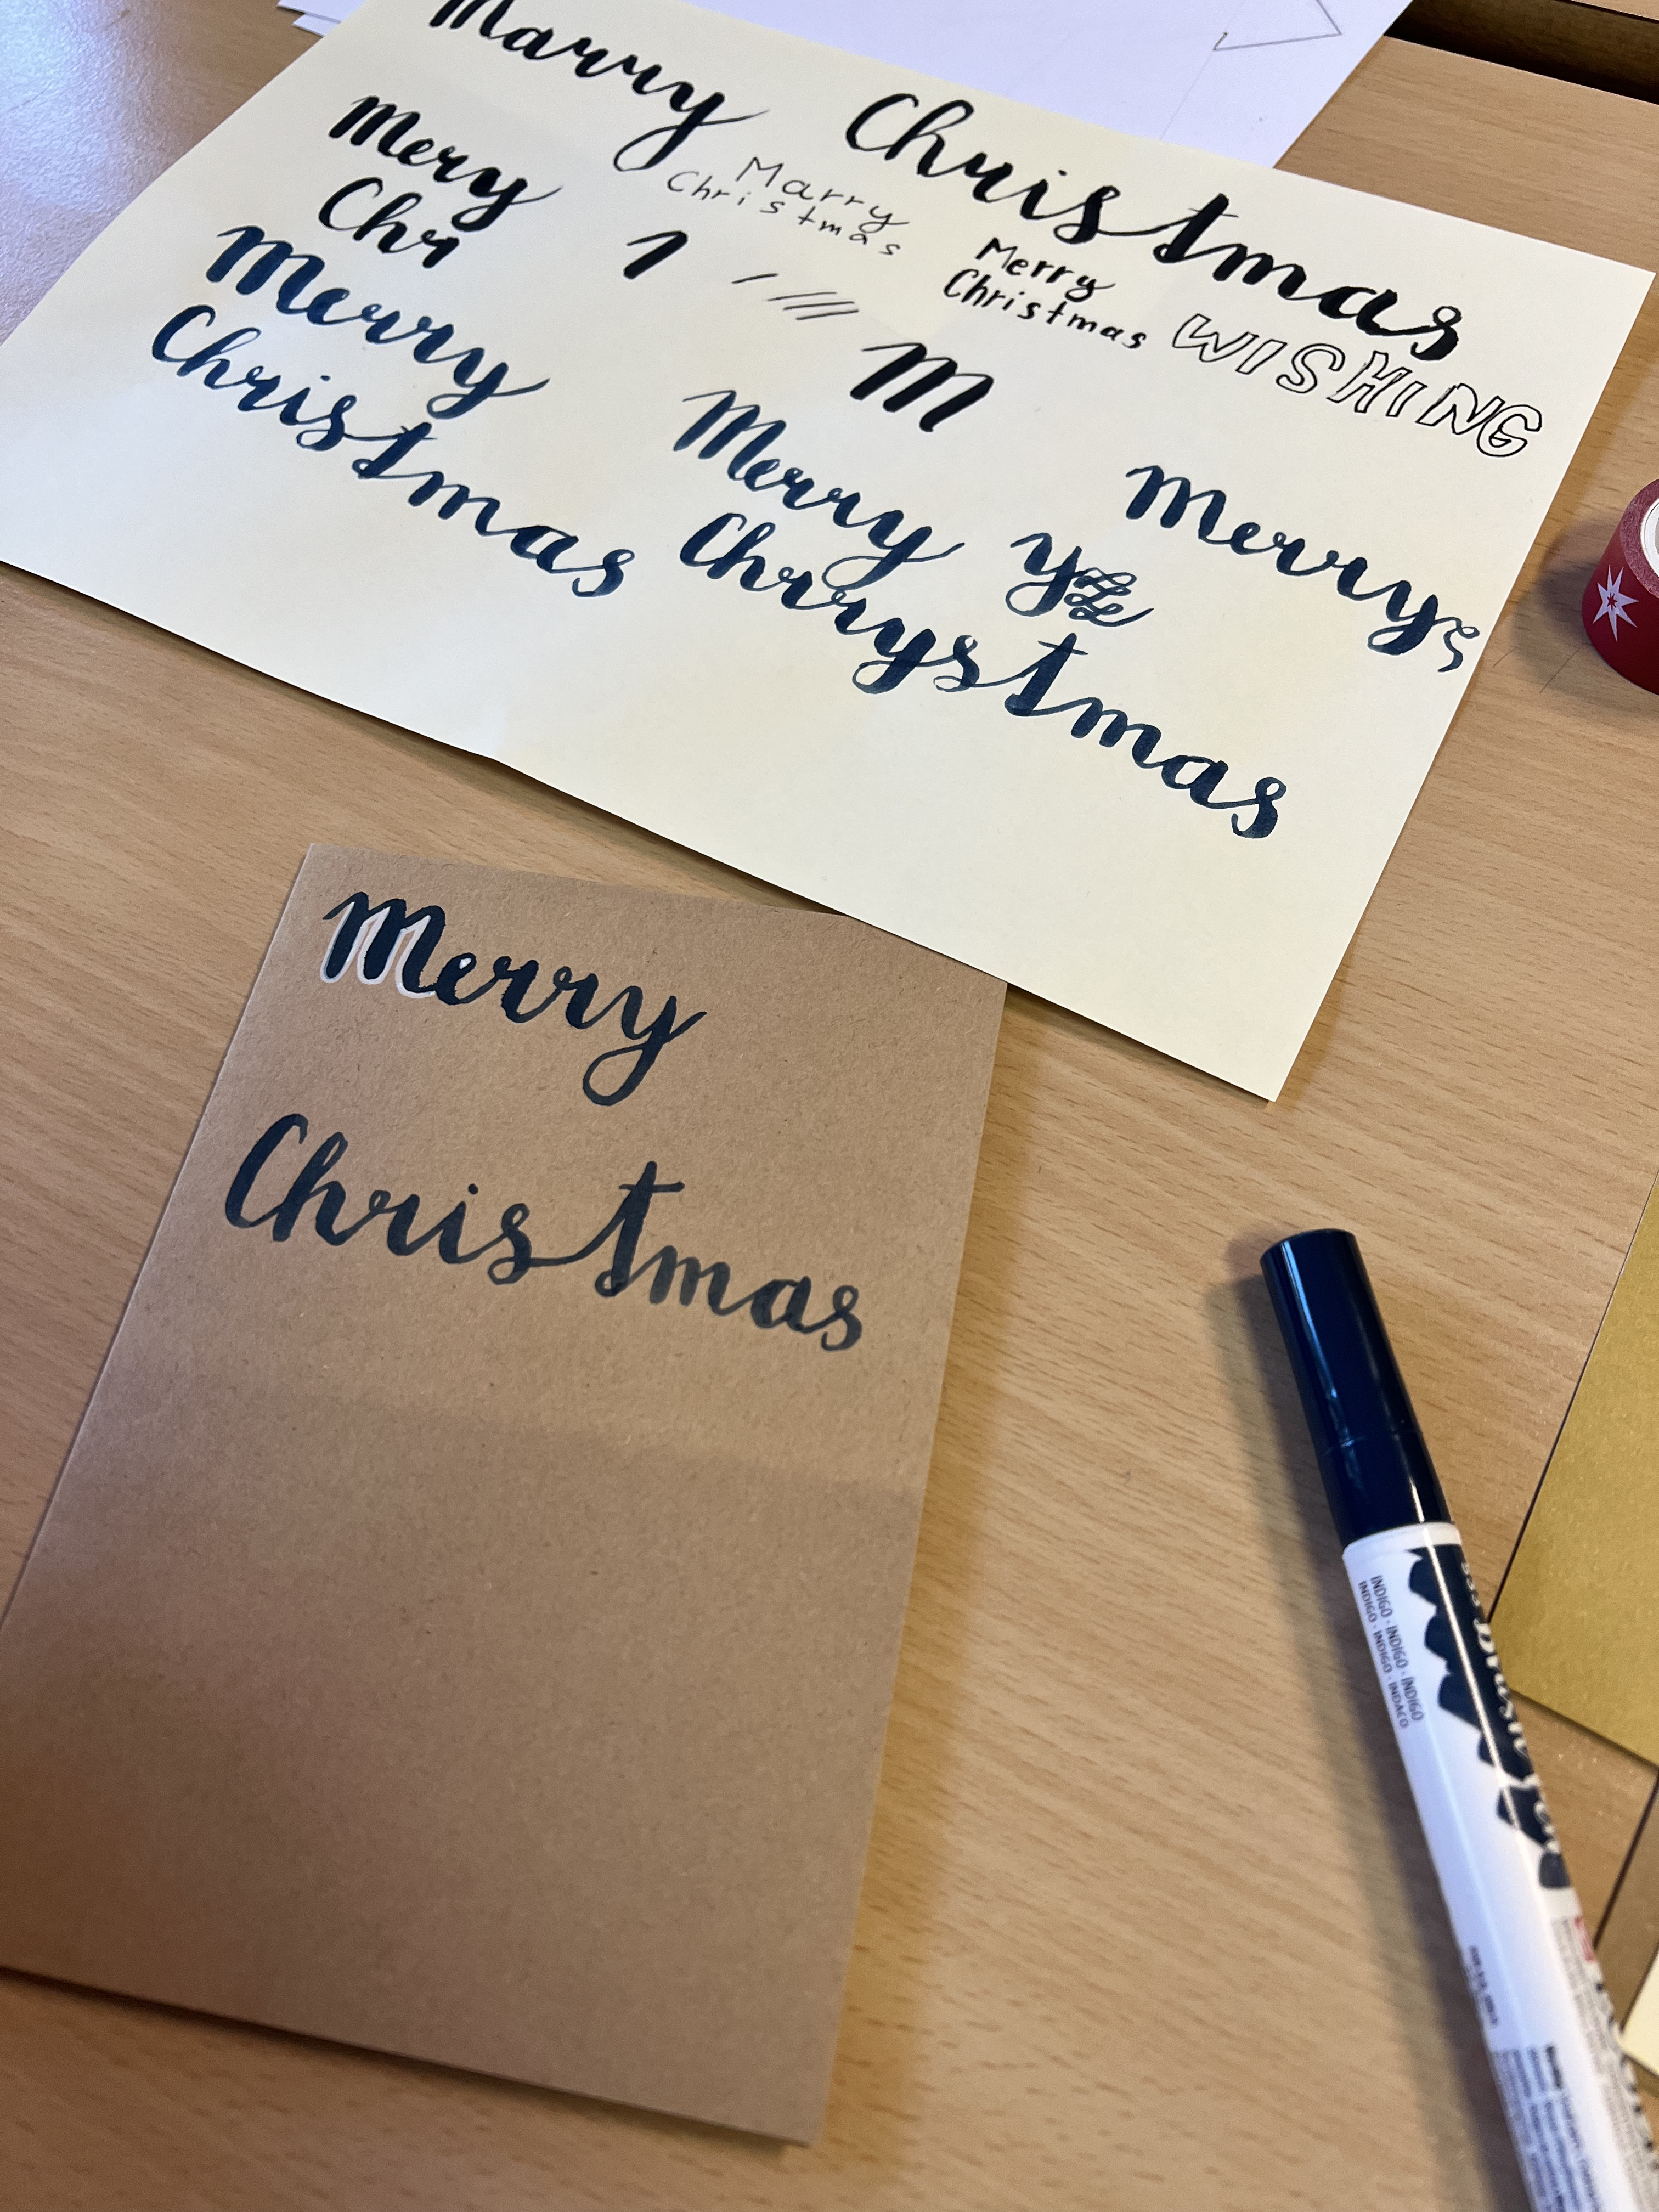 Marry Christmas
Mery
Chr
Marry
Christmas
Merry
Christmas
WISHING
Merry
Christmas
M
Merry
Chrrystmas
y
Merry
Merry
Christmas
INDIGO - INDIGO - ÍNDIGO
INDIGO - INDIGO - INDACO